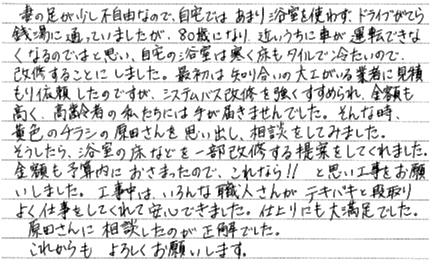 妻の足が少し不自由なので、自宅ではあまり浴室を使わず、ドライブがてら
銭湯に通っていましたが、80歳になり、近いうちに車が運転できな
くなるのではと思い、自宅の浴室は寒く床もタイルで冷たいので、
改修することにしました。最初は知り合いの大工がいる業者に見積
もり依頼したのですが、システムバス改修を強くすすめられ、金額も
高く、高齢者の私たちには手が届きませんでした。そんな時、
黄色のチラシの原田さんを思い出し、相談をしてみました。
そうしたら、浴室の床などを一部改修する提案をしてくれました。
金額も予算内におさまったので、これなら!!と思い工事をお願
いしました。工事中は、いろんな職人さんがテキパキと段取り
よく仕事をしてくれて安心できました。仕上りにも大満足でした。
原田さんに相談したのが正解でした。
これからもよろしくお願いします。